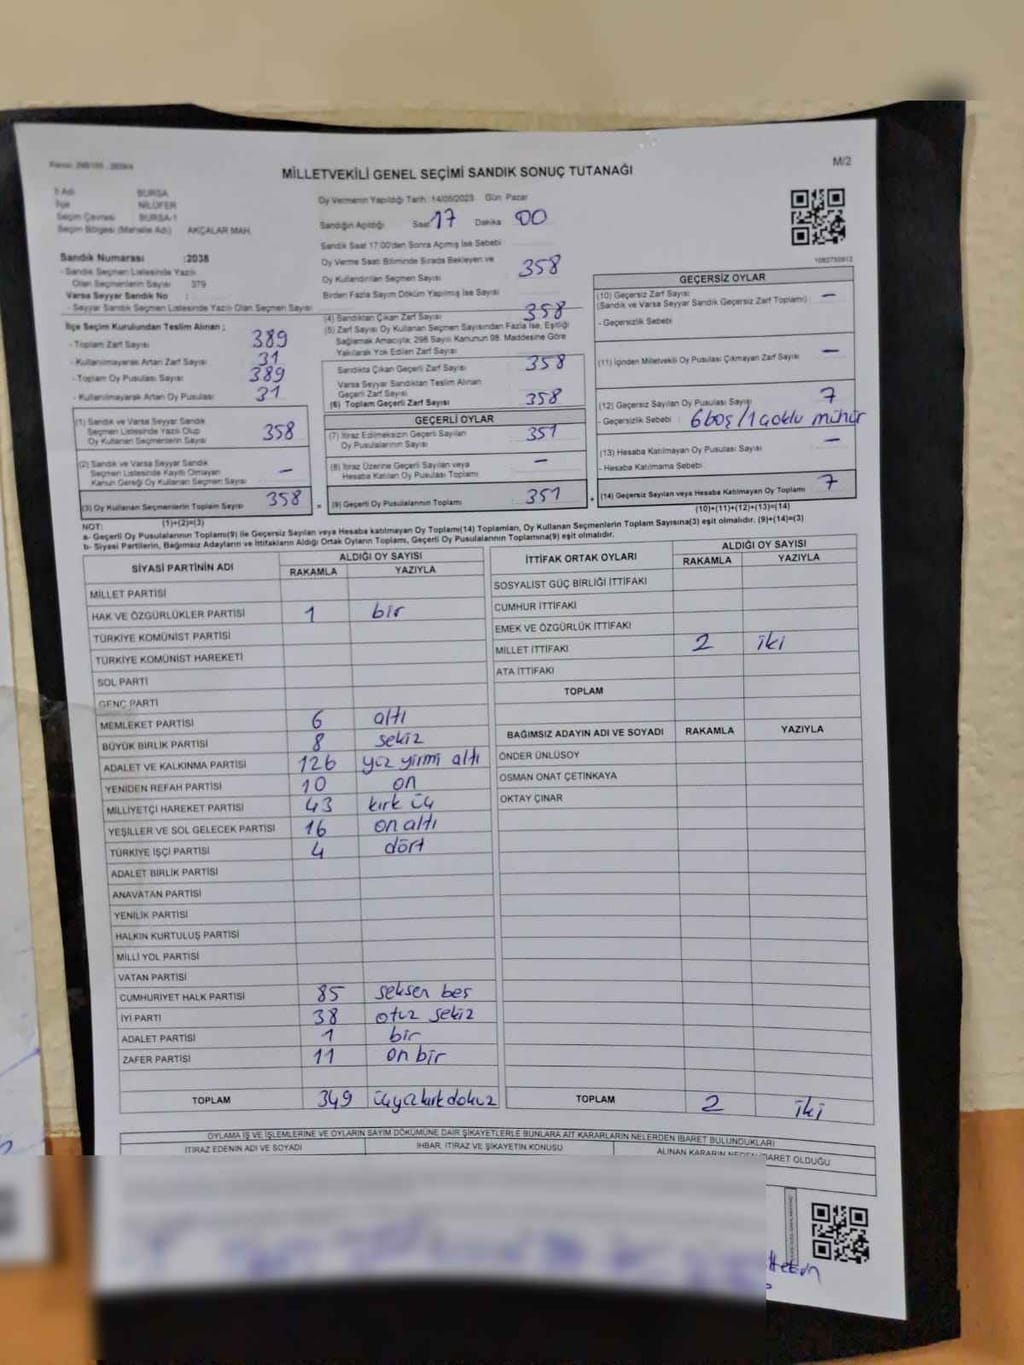 MİLLETVEKİLİ GENEL SEÇİMİ SANDIK SONUÇ TUTANAĞI
M/2
İl Adı BURSA
İlçe NİLÜFER
Seçim Çevresi BURSA-1
Seçim Bölgesi (Mahalle Adı) AKÇALAR MAH.
Oy Vermenin Yapıldığı Tarih: 14/05/2023 Gün Pazar
Sandığın Açıldığı Saat 17 Dakika 00
Sandık Saat 17:00'den Sonra Açılmış İse Sebebi
Oy Verme Saati Bitiminde Sırada Bekleyen ve
Oy Kullandırılan Seçmen Sayısı 358
Birden Fazla Sayım Döküm Yapılmış İse Sayısı
Sandık Numarası :2038
- Sandık Seçmen Listesinde Yazılı
Olan Seçmenlerin Sayısı 379
Varsa Seyyar Sandık No :
- Seyyar Sandık Seçmen Listesinde Yazılı Olan Seçmen Sayısı
İlçe Seçim Kurulundan Teslim Alınan ;
- Toplam Zarf Sayısı 389
- Kullanılmayarak Artan Zarf Sayısı 31
- Toplam Oy Pusulası Sayısı 389
- Kullanılmayarak Artan Oy Pusulası 31
(1) Sandık ve Varsa Seyyar Sandık
Seçmen Listesinde Yazılı Olup
Oy Kullanan Seçmenlerin Sayısı 358
(2) Sandık ve Varsa Seyyar Sandık
Seçmen Listesinde Kayıtlı Olmayan
Kanun Gereği Oy Kullanan Seçmen Sayısı –
(3) Oy Kullanan Seçmenlerin Toplam Sayısı 358
(1)+(2)=(3)
(4) Sandıktan Çıkan Zarf Sayısı 358
(5) Zarf Sayısı Oy Kullanan Seçmen Sayısından Fazla İse, Eşitliği
Sağlamak Amacıyla; 298 Sayılı Kanunun 98. Maddesine Göre
Yakılarak Yok Edilen Zarf Sayısı
Sandıkta Çıkan Geçerli Zarf Sayısı 358
Varsa Seyyar Sandıktan Teslim Alınan
Geçerli Zarf Sayısı
(6) Toplam Geçerli Zarf Sayısı 358
GEÇERLİ OYLAR
(7) İtiraz Edilmeksizin Geçerli Sayılan
Oy Pusulalarının Sayısı 351
(8) İtiraz Üzerine Geçerli Sayılan veya
Hesaba Katılan Oy Pusulası Toplamı –
= (9) Geçerli Oy Pusulalarının Toplamı 351 +
1082750912
GEÇERSİZ OYLAR
(10) Geçersiz Zarf Sayısı
(Sandık ve Varsa Seyyar Sandık Geçersiz Zarf Toplamı) –
- Geçersizlik Sebebi
(11) İçinden Milletvekili Oy Pusulası Çıkmayan Zarf Sayısı –
(12) Geçersiz Sayılan Oy Pusulası Sayısı 7
- Geçersizlik Sebebi : 6 boş / 1 çoklu mühür
(13) Hesaba Katılmayan Oy Pusulası Sayısı –
- Hesaba Katılmama Sebebi
(14) Geçersiz Sayılan veya Hesaba Katılmayan Oy Toplamı 7
(10)+(11)+(12)+(13)=(14)
NOT:
a- Geçerli Oy Pusulalarının Toplamı(9) ile Geçersiz Sayılan veya Hesaba katılmayan Oy Toplamı(14) Toplamları, Oy Kullanan Seçmenlerin Toplam Sayısına(3) eşit olmalıdır. (9)+(14)=(3)
b- Siyasi Partilerin, Bağımsız Adayların ve İttifakların Aldığı Ortak Oyların Toplamı, Geçerli Oy Pusulalarının Toplamına(9) eşit olmalıdır.
SİYASİ PARTİNİN ADI ALDIĞI OY SAYISI
RAKAMLA YAZIYLA
MİLLET PARTİSİ
HAK VE ÖZGÜRLÜKLER PARTİSİ 1 bir
TÜRKİYE KOMÜNİST PARTİSİ
TÜRKİYE KOMÜNİST HAREKETİ
SOL PARTİ
GENÇ PARTİ
MEMLEKET PARTİSİ 6 altı
BÜYÜK BİRLİK PARTİSİ 8 sekiz
ADALET VE KALKINMA PARTİSİ 126 yüz yirmi altı
YENİDEN REFAH PARTİSİ 10 on
MİLLİYETÇİ HAREKET PARTİSİ 43 kırk üç
YEŞİLLER VE SOL GELECEK PARTİSİ 16 on altı
TÜRKİYE İŞÇİ PARTİSİ 4 dört
ADALET BİRLİK PARTİSİ
ANAVATAN PARTİSİ
YENİLİK PARTİSİ
HALKIN KURTULUŞ PARTİSİ
MİLLİ YOL PARTİSİ
VATAN PARTİSİ
CUMHURİYET HALK PARTİSİ 85 seksen beş
İYİ PARTİ 38 otuz sekiz
ADALET PARTİSİ 1 bir
ZAFER PARTİSİ 11 on bir
TOPLAM 349 üçyüzkırkdokuz
İTTİFAK ORTAK OYLARI ALDIĞI OY SAYISI
RAKAMLA YAZIYLA
SOSYALİST GÜÇ BİRLİĞİ İTTİFAKI
CUMHUR İTTİFAKI
EMEK VE ÖZGÜRLÜK İTTİFAKI
MİLLET İTTİFAKI 2 iki
ATA İTTİFAKI
TOPLAM
BAĞIMSIZ ADAYIN ADI VE SOYADI RAKAMLA YAZIYLA
ÖNDER ÜNLÜSOY
OSMAN ONAT ÇETİNKAYA
OKTAY ÇINAR
TOPLAM 2 iki
OYLAMA İŞ VE İŞLEMLERİNE VE OYLARIN SAYIM DÖKÜMÜNE DAİR ŞİKAYETLERLE BUNLARA AİT KARARLARIN NELERDEN İBARET BULUNDUKLARI
İTİRAZ EDENİN ADI VE SOYADI İHBAR, İTİRAZ VE ŞİKAYETİN KONUSU ALINAN KARARIN NEDEN İBARET OLDUĞU